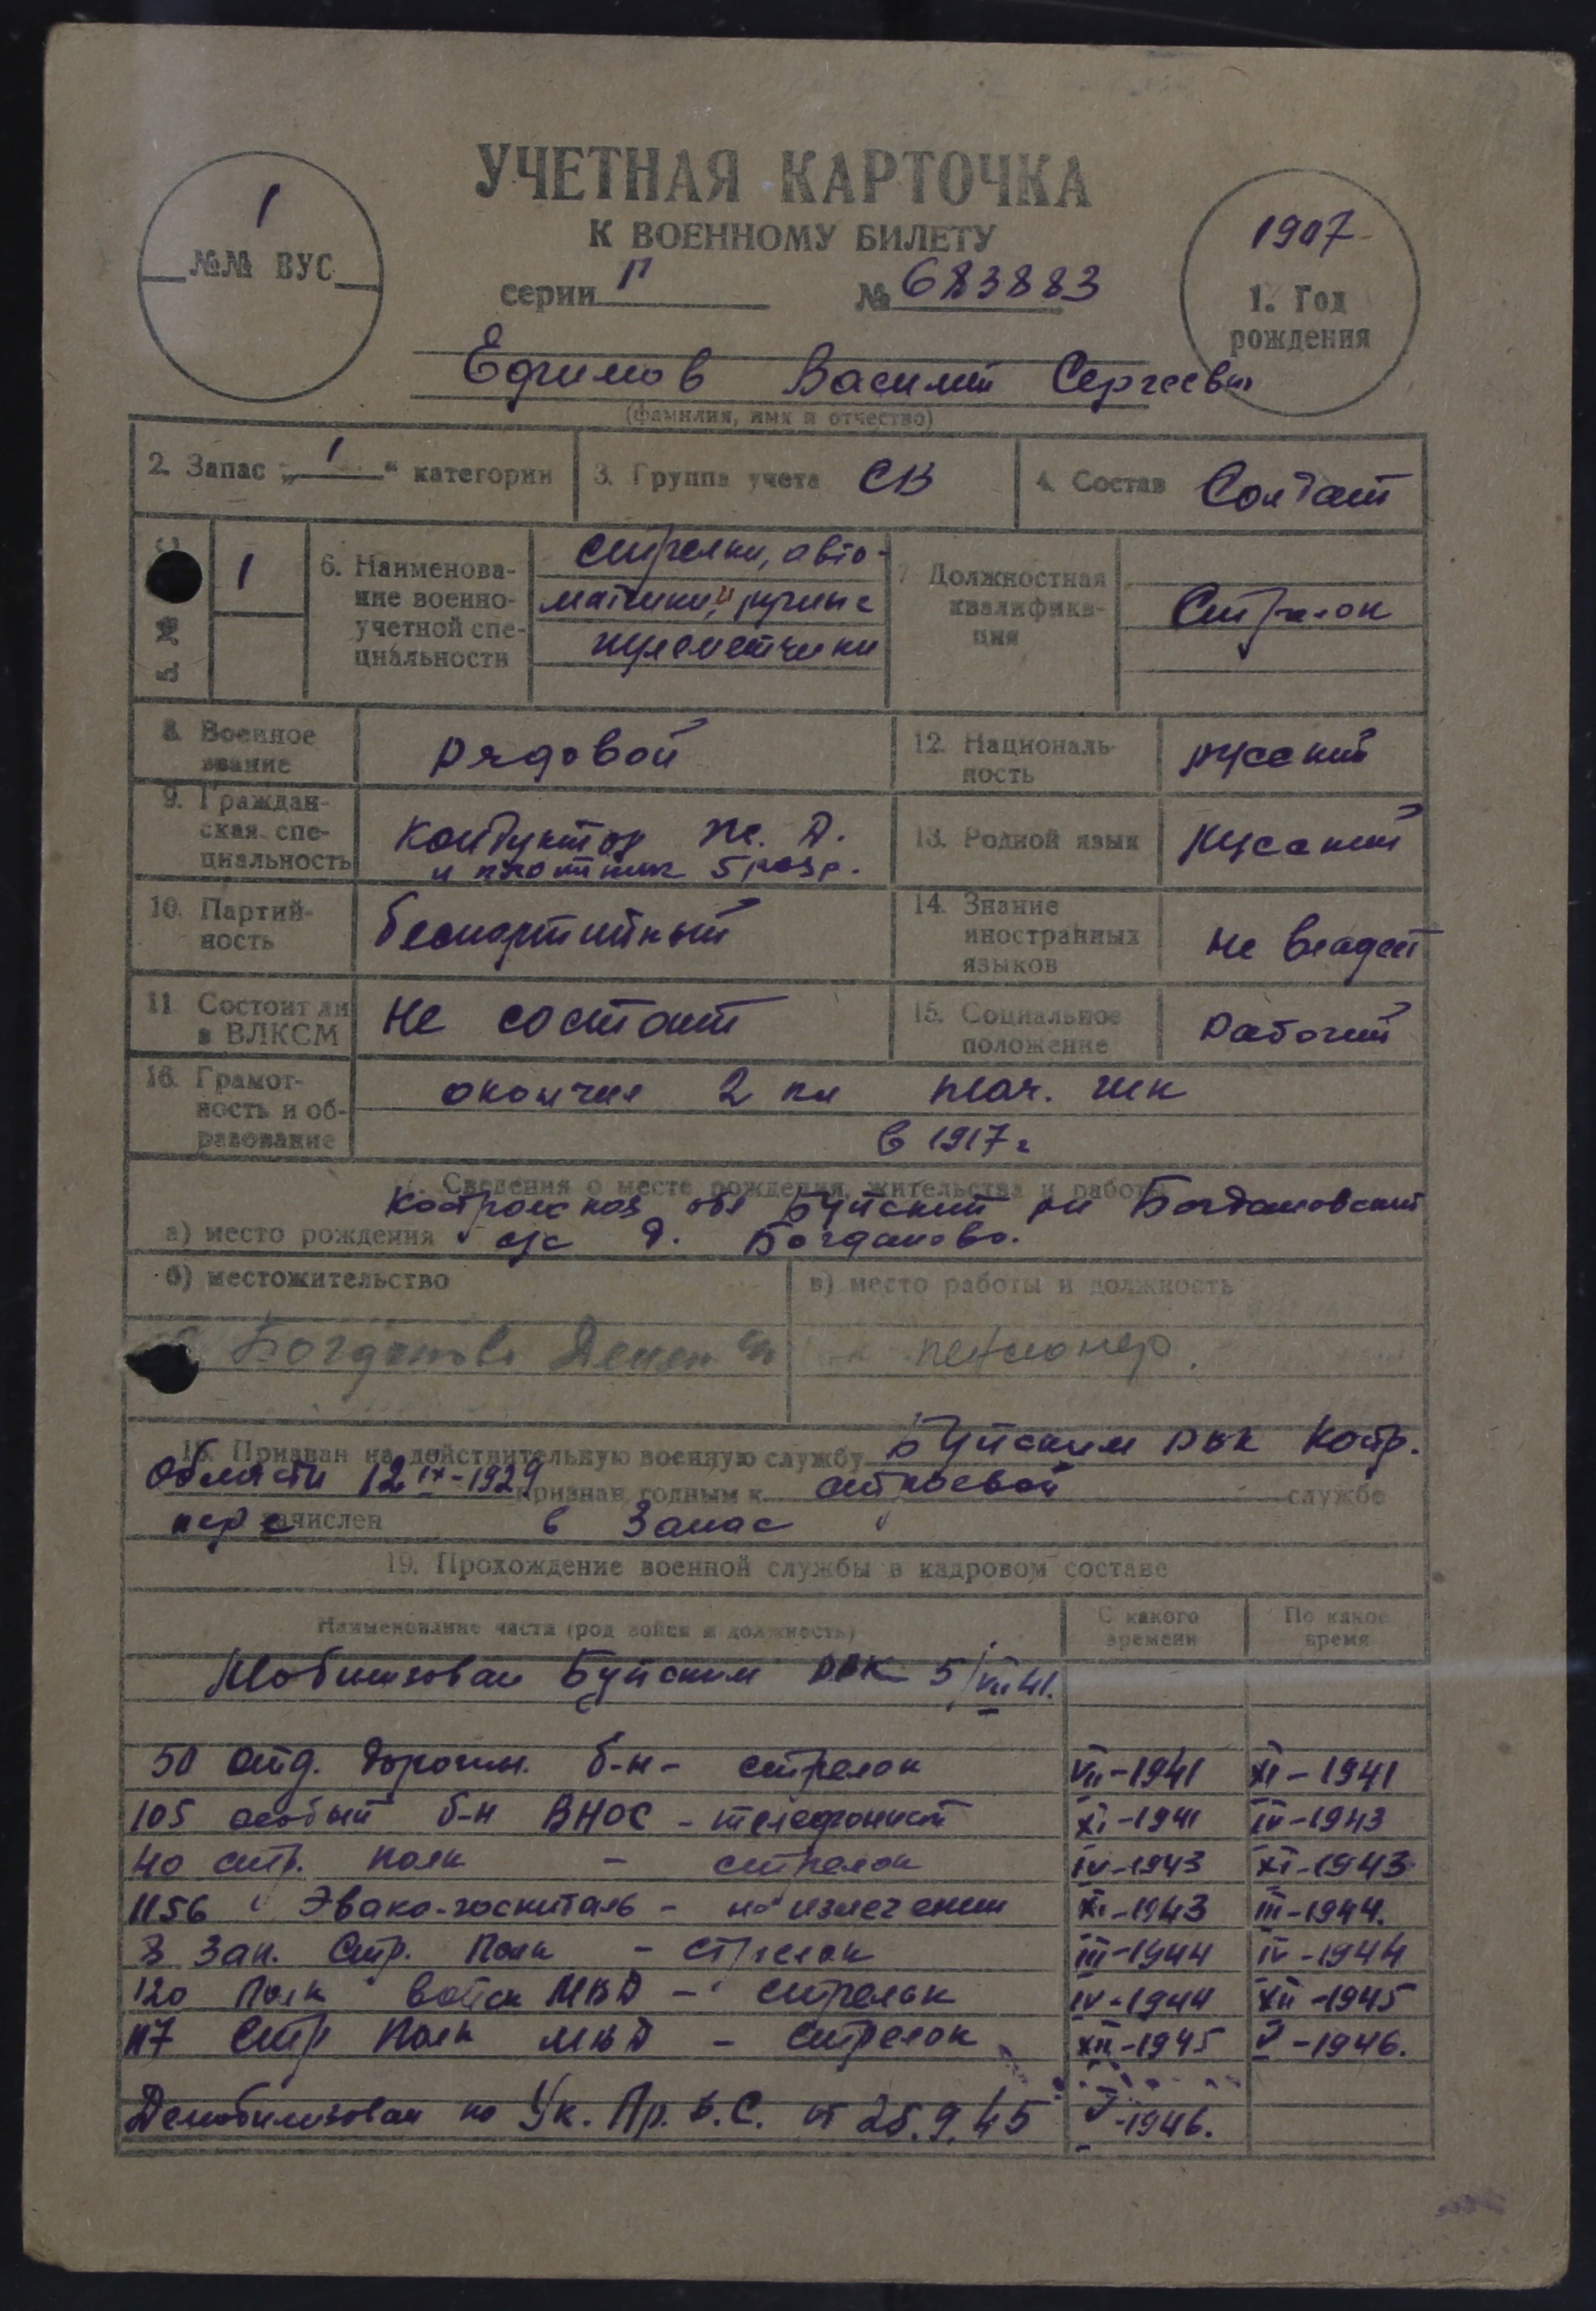 УЧЕТНАЯ КАРТОЧКА
К ВОЕННОМУ БИЛЕТУ
1
№№ ВУС
серии П № 683883
1907
1. Год
рождения
Ефимов Василий Сергеевич
(фамилия, имя и отчество)
2. Запас „ 1 “ категории
3. Группа учета СВ
4. Состав Солдат
5. №
1
6. Наименова-
ние военно-
учетной спе-
циальности
стрелки, авто-
матчики, ручные
пулеметчики
7 Должностная
квалифика-
ция
Стрелок
8. Военное
звание
рядовой
12. Националь-
ность
русский
9. Граждан-
ская спе-
циальность
Кондуктор ж. д.
и плотник 5 разр.
13. Родной язык
Русский
10. Партий-
ность
беспартийный
14. Знание
иностранных
языков
не владеет
11 Состоит ли
в ВЛКСМ
не состоит
15. Социальное
положение
рабочий
16. Грамот-
ность и об-
разование
окончил 2 кл нач. шк
в 1917 г
17. Сведения о месте рождения, жительства и работы
Костромская обл Буйский рн Богдановский
а) место рождения с/с д. Богданово.
б) местожительство
в) место работы и должность
Богданово
пенсионер.
18. Призван на действительную военную службу Буйским РВК Костр.
области 12 IX-1929 признан годным к строевой службе
пере зачислен в Запас
19. Прохождение военной службы в кадровом составе
Наименование части (род войск и должность)
С какого
времени
По какое
время
Мобилизован Буйским РВК 5/VII 41.
50 отд. дорожн. б-н - стрелок VII-1941 XI-1941
105 особый б-н ВНОС - телефонист XI-1941 IV-1943
40 стр. полк - стрелок IV-1943 XI-1943
1156 Эвако-госпиталь - на излечении XI-1943 III-1944.
8 Зап. Стр. Полк - стрелок III-1944 IV-1944
120 Полк Войск МВД - стрелок IV-1944 XII-1945
117 Стр Полк МВД - стрелок XII-1945 V-1946.
Демобилизован по Ук. Пр. В. С. от 25.9.45 V-1946.